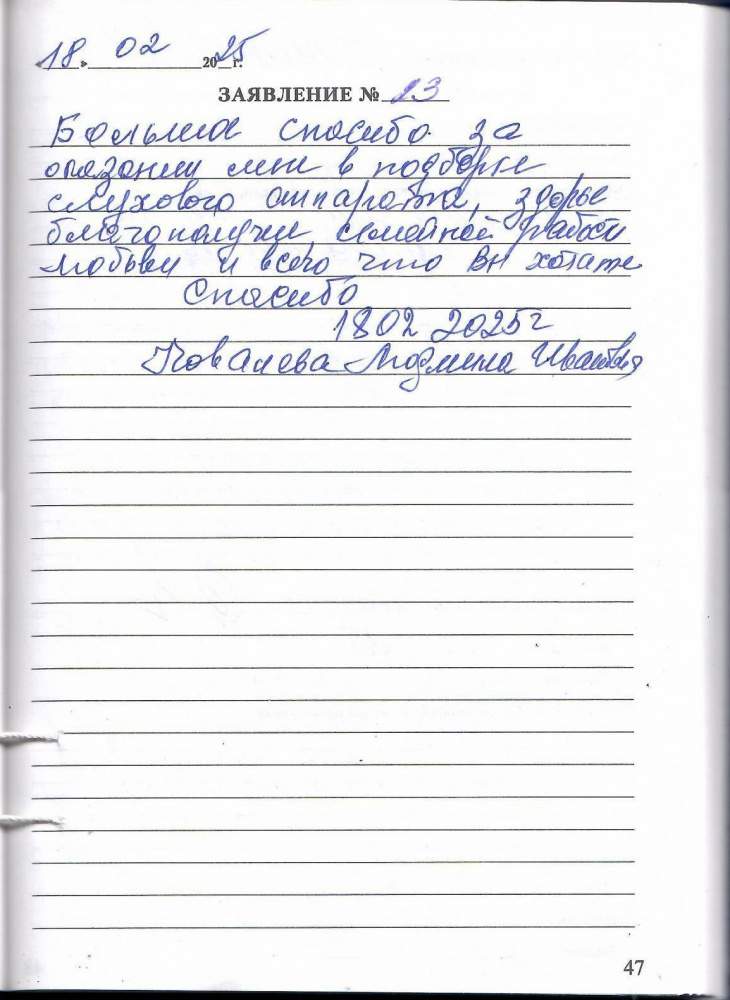 «18» 02 2025 г.
ЗАЯВЛЕНИЕ № 13
Большое спасибо за
оказании мни в подборке
слухового аппарата, здорье
благополучи, семейной работы
любьви и всего что Вы хотите
Спасибо
18 02 2025 г
Ковалева Людмила Ивановна
47